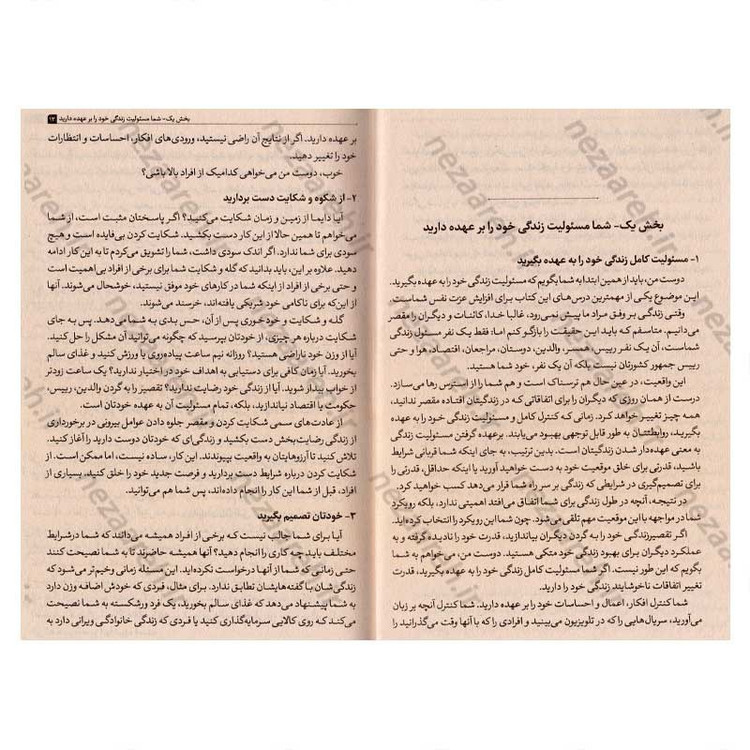 بخش یک- شما مسئولیت زندگی خود را بر عهده دارید
۱- مسئولیت کامل زندگی خود را به عهده بگیرید
دوست من، باید از همین ابتدا به شما بگویم که مسئولیت زندگی خود را به عهده بگیرید.
این موضوع یکی از مهمترین درس‌های این کتاب برای افزایش عزت نفس شماست.
وقتی زندگی بر وفق مراد ما پیش نمی‌رود، غالبا خدا، کائنات و دیگران را مقصر
می‌دانیم. متاسفم که باید این حقیقت را بازگو کنم اما: فقط یک نفر مسئول زندگی
شماست، آن یک نفر رییس، همسر، والدین، دوستان، مراجعان، اقتصاد، هوا و حتی
رییس جمهور کشورتان نیست بلکه آن یک نفر، خود شما هستید.
این واقعیت، در عین حال هم ترسناک است و هم شما را از استرس رها می‌سازد.
درست از همان روزی که دیگران را برای اتفاقاتی که در زندگیتان افتاده مقصر ندانید،
همه چیز تغییر خواهد کرد. زمانی که کنترل کامل و مسئولیت زندگی خود را به عهده
بگیرید، روابطتتان به طور قابل توجهی بهبود می‌یابند. برعهده گرفتن مسئولیت زندگی
به معنی عهده‌دار شدن زندگیتان است. بدین ترتیب، به جای اینکه شما قربانی شرایط
باشید، قدرتی برای خلق موقعیت خود به دست خواهید آورید یا اینکه حداقل، قدرتی را
برای تصمیم‌گیری در شرایطی که زندگی بر سر راه شما قرار می‌دهد کسب خواهید کرد.
در نتیجه، آنچه در طول زندگی برای شما اتفاق می‌افتد اهمیتی ندارد، بلکه رویکرد
شما در مواجهه با این موقعیت مهم تلقی می‌شود. چون شما این رویکرد را انتخاب کرده‌اید.
اگر تقصیر زندگی خود را به گردن دیگران بیاندازید، قدرت خود را نادیده گرفته و به
عملکرد دیگران برای بهبود زندگی خود متکی هستید. دوست من، می‌خواهم به شما
بگویم که این طور نیست. اگر مسئولیت کامل زندگی خود را به عهده بگیرید، قدرت
تغییر اتفاقات ناخوشایند زندگی خود را دارید.
شما کنترل افکار، اعمال و احساسات خود را بر عهده دارید. شما کنترل آنچه بر زبان
می‌آورید، سریال‌هایی را که در تلویزیون می‌بینید و افرادی را که با آنها وقت می‌گذرانید را
بخش یک- شما مسئولیت زندگی خود را بر عهده دارید ۱۳
بر عهده دارید. اگر از نتایج آن راضی نیستید، ورودی‌های افکار، احساسات و انتظارات
خود را تغییر دهید.
خوب، دوست من می‌خواهی کدامیک از افراد بالا باشی؟
۲- از شکوه و شکایت دست بردارید
آیا دایما از زمین و زمان شکایت می‌کنید؟ اگر پاسختان مثبت است، از شما
می‌خواهم تا همین حالا از این کار دست بکشید. شکایت کردن بی‌فایده است و هیچ
سودی برای شما ندارد. اگر اندک سودی داشت، شما را تشویق می‌کردم تا به این کار ادامه
دهید. علاوه بر این، باید بدانید که گله و شکایت شما برای برخی از افراد بی‌اهمیت است
و حتی برخی از افراد از اینکه شما در کارهای خود موفق نیستید، خوشحال می‌شوند. آنها
از این‌که برای ناکامی خود شریکی یافته‌اند، خرسند می‌شوند.
گله و شکایت و خودخوری پس از آن، حس بدی به شما می‌دهد. پس به جای
شکایت درباره هر چیزی، از خودتان بپرسید که چگونه می‌توانید آن مشکل را حل کنید.
آیا از وزن خود ناراضی هستید؟ روزانه نیم ساعت پیاده‌روی یا ورزش کنید و غذای سالم
بخورید. آیا زمان کافی برای دستیابی به اهداف خود در اختیار ندارید؟ یک ساعت زودتر
از خواب بیدار شوید. آیا از زندگی خود رضایت ندارید؟ تقصیر را به گردن والدین، رییس،
حکومت یا اقتصاد نیاندازید، بلکه، تمام مسئولیت آن به عهده خودتان است.
از عادت‌های سمی شکایت کردن و مقصر جلوه دادن عوامل بیرونی در برخورداری
از زندگی رضایت‌بخش دست بکشید و زندگی‌ای که خودتان دوست دارید را آغاز کنید.
تلاش کنید تا آرزوهایتان به واقعیت بپیوندند. این کار، ساده نیست، اما ممکن است. از
شکایت کردن درباره شرایط دست بردارید و فرصت جدید خود را خلق کنید، بسیاری از
افراد، قبل از شما این کار را انجام داده‌اند، پس شما هم می‌توانید.
۳- خودتان تصمیم بگیرید
آیا برای شما جالب نیست که برخی از افراد همیشه می‌دانند که شما در شرایط
مختلف باید چه کاری را انجام دهید؟ آنها همیشه حاضرند تا به شما نصیحت کنند
حتی زمانی که شما از آنها درخواست نکرده‌اید. این مسئله زمانی وخیم‌تر می‌شود که
زندگی‌شان با گفته‌هایشان تطابق ندارد. برای مثال، فردی که خودش اضافه وزن دارد
به شما پیشنهاد می‌دهد که غذای سالم بخورید، یک فرد ورشکسته به شما نصیحت
می‌کند که روی کالایی سرمایه‌گذاری کنید یا فردی که زندگی خانوادگی ویرانی دارد به
nezaareh.ir